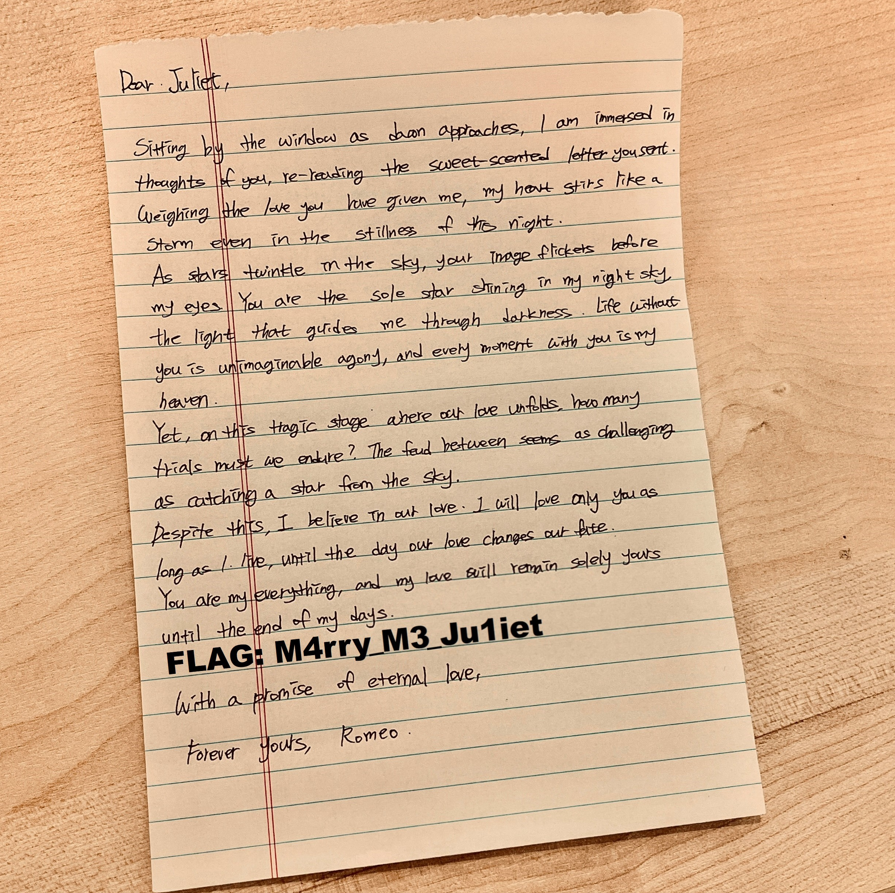 Dear. Juliet,
Sitting by the window as dawn approaches, I am immersed in
thoughts of you, re-reading the sweet-scented letter you sent.
Weighing the love you have given me, my heart stirs like a
storm even in the stillness of the night.
As stars twinkle in the sky, your image flickers before
my eyes You are the sole star shining in my night sky
the light that guides me through darkness. Life without
you is unimaginable agony, and every moment with you is my
heaven.
Yet, on this tragic stage where our love unfolds, how many
trials must we endure? The feud between seems as challenging
as catching a star from the sky.
Despite this, I believe in our love. I will love only you as
long as I live, until the day our love changes our fate.
You are my everything, and my love will remain solely yours
until the end of my days.
FLAG: M4rry_M3_Ju1iet
With a promise of eternal love,
Forever yours, Romeo.